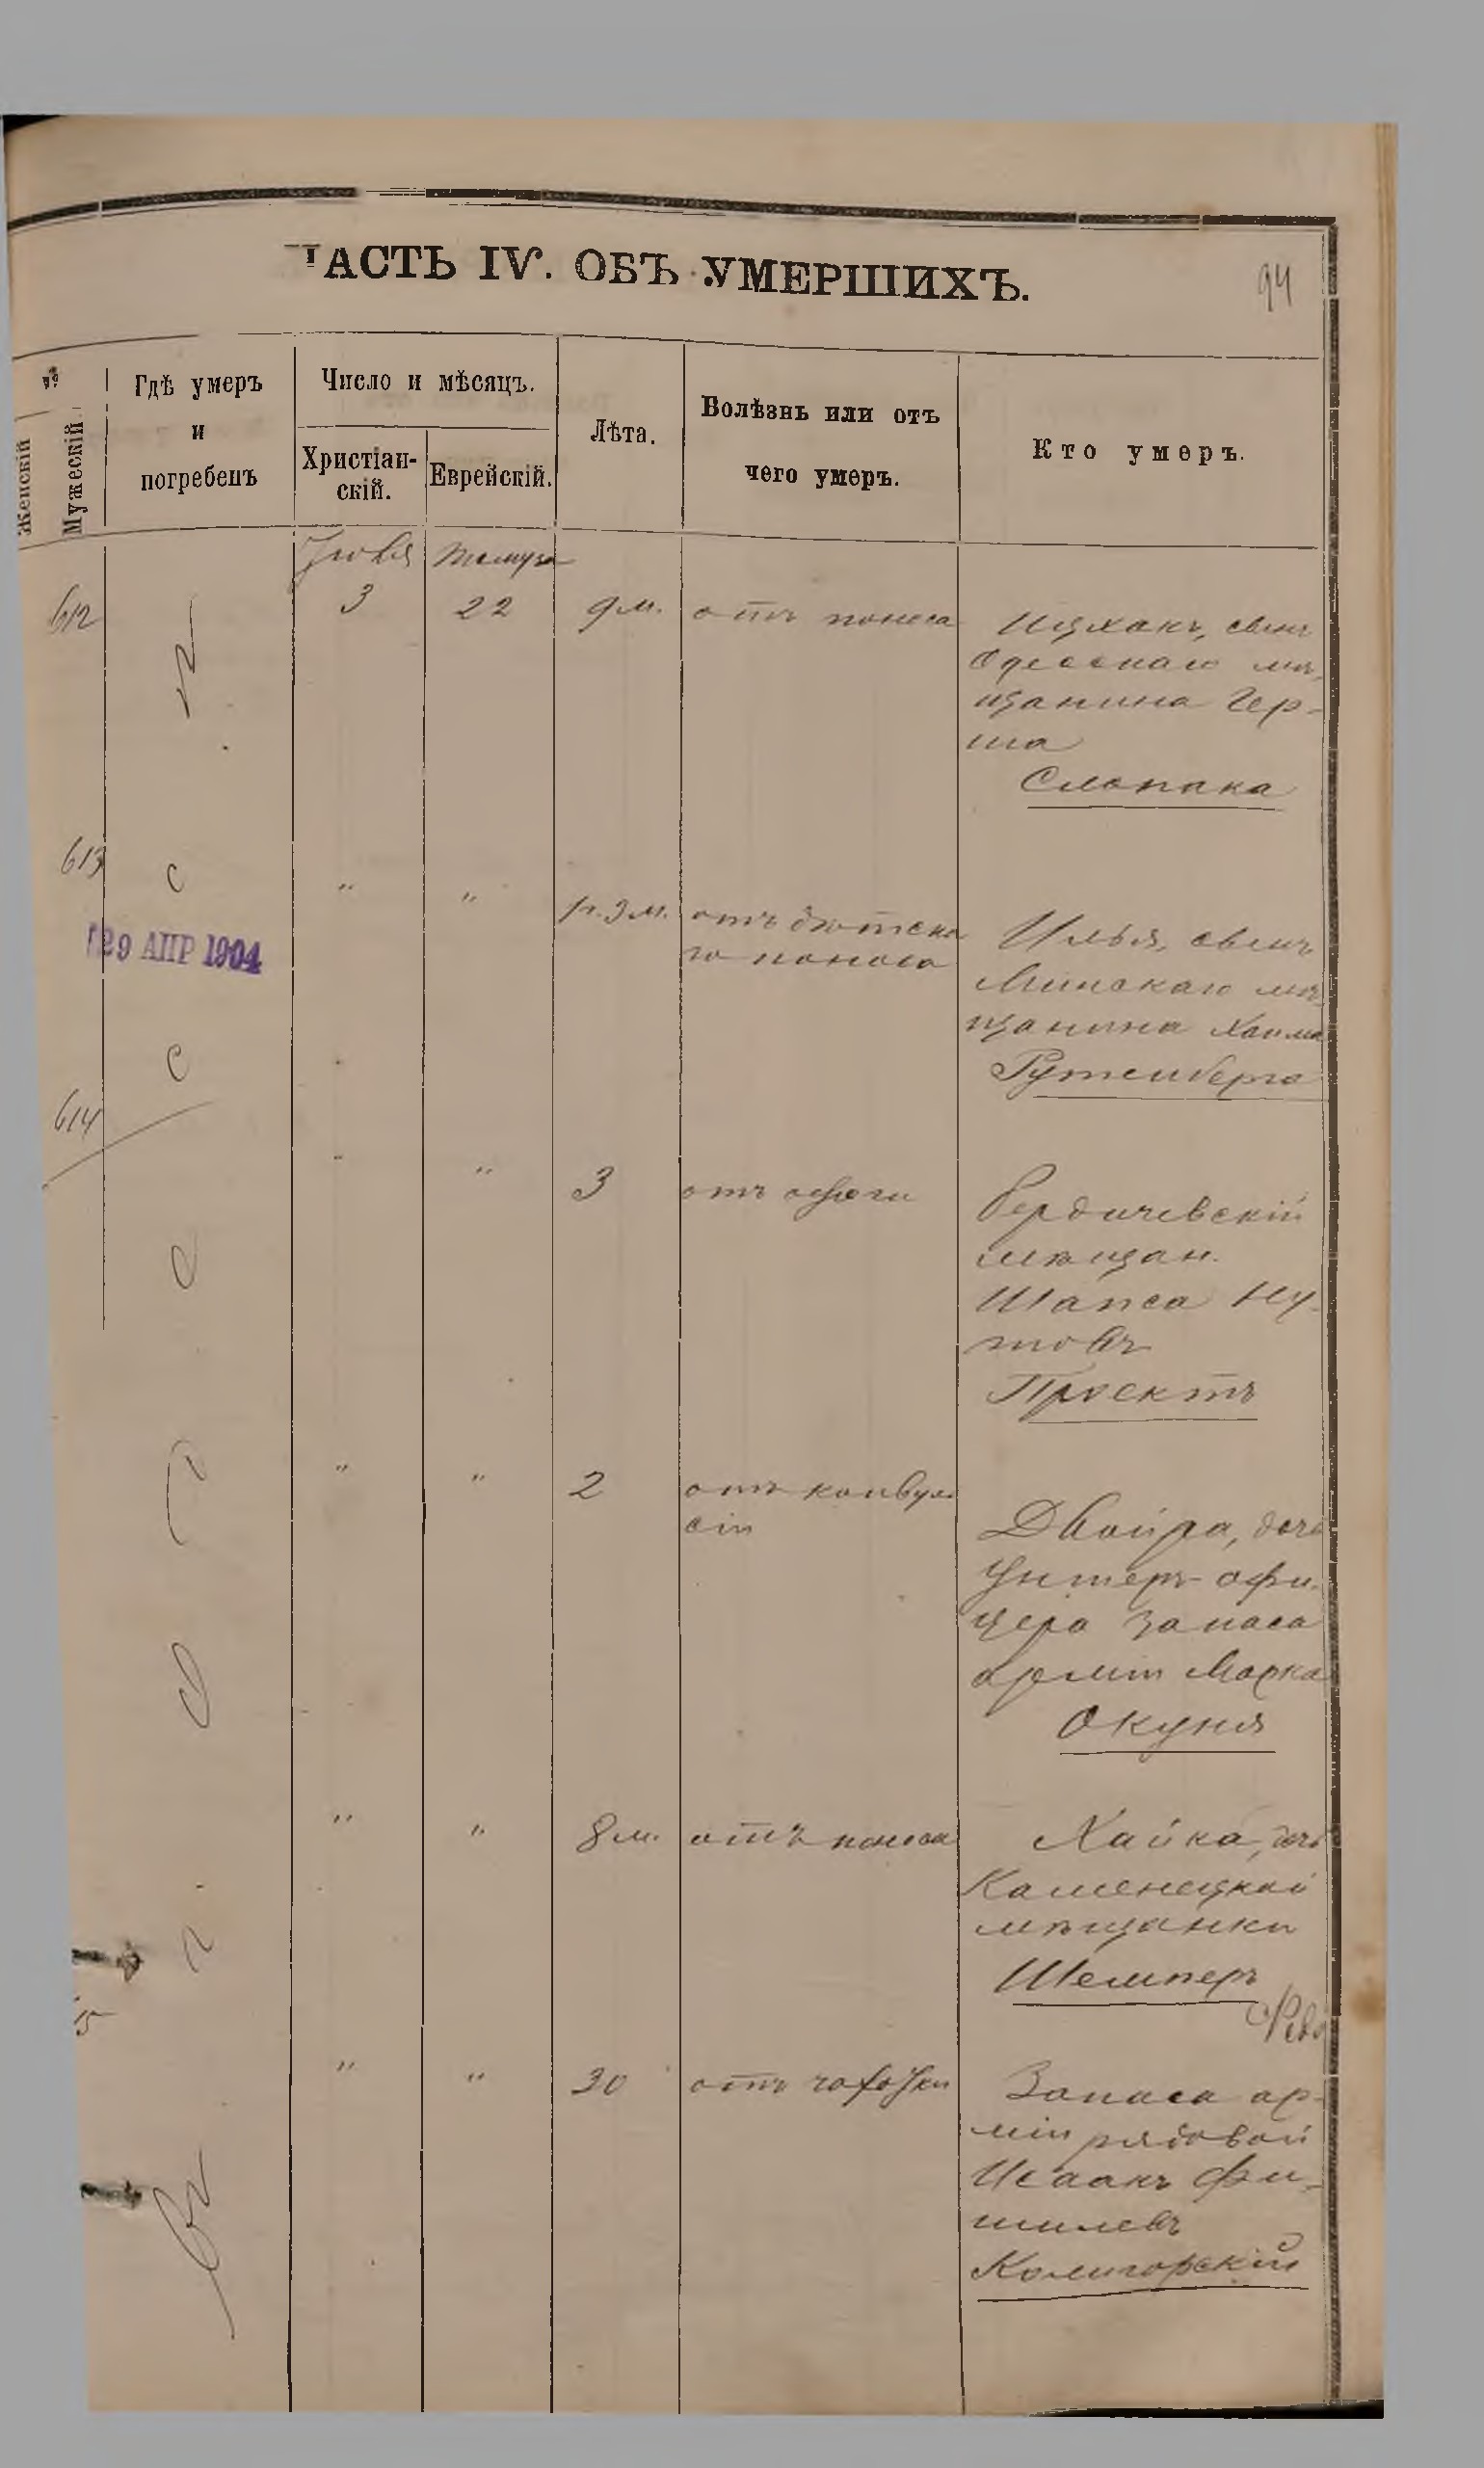 ЧАСТЬ IV. ОБЪ УМЕРШИХЪ.
94
№
Женскій
Мужескій.
Гдѣ умеръ
и
погребенъ
Число и мѣсяцъ.
Христіан-
скій.
Еврейскій.
Лѣта.
Болѣзнь или отъ
чего умеръ.
Кто умеръ.
Іюля
612
3
22
9 м.
отъ поноса
Ицхакъ, сынъ
Одесскаго мѣ-
щанина Гер-
ша
Слопака
613
"
"
1 г. 3 м.
отъ дѣтска
го поноса
29 АПР 1904
Илья, сынъ
Минскаго мѣ-
щанина Хаима
Рутенберга
614
"
"
3
отъ
Бердичевскій
мѣщан.
Шапса Ну-
товъ
Проектъ
"
"
2
отъ конвуль
сіи
Двойра, дочь
Унтеръ-офи-
цера запаса
арміи Марка
Окуня
"
"
8 м.
отъ поноса
Хайка, дочь
Каменецкой
мѣщанки
Шемперъ
15
"
"
30
отъ чахотки
Запаса ар-
міи рядовой
Исаакъ Фи-
шилевъ
Комигорскій